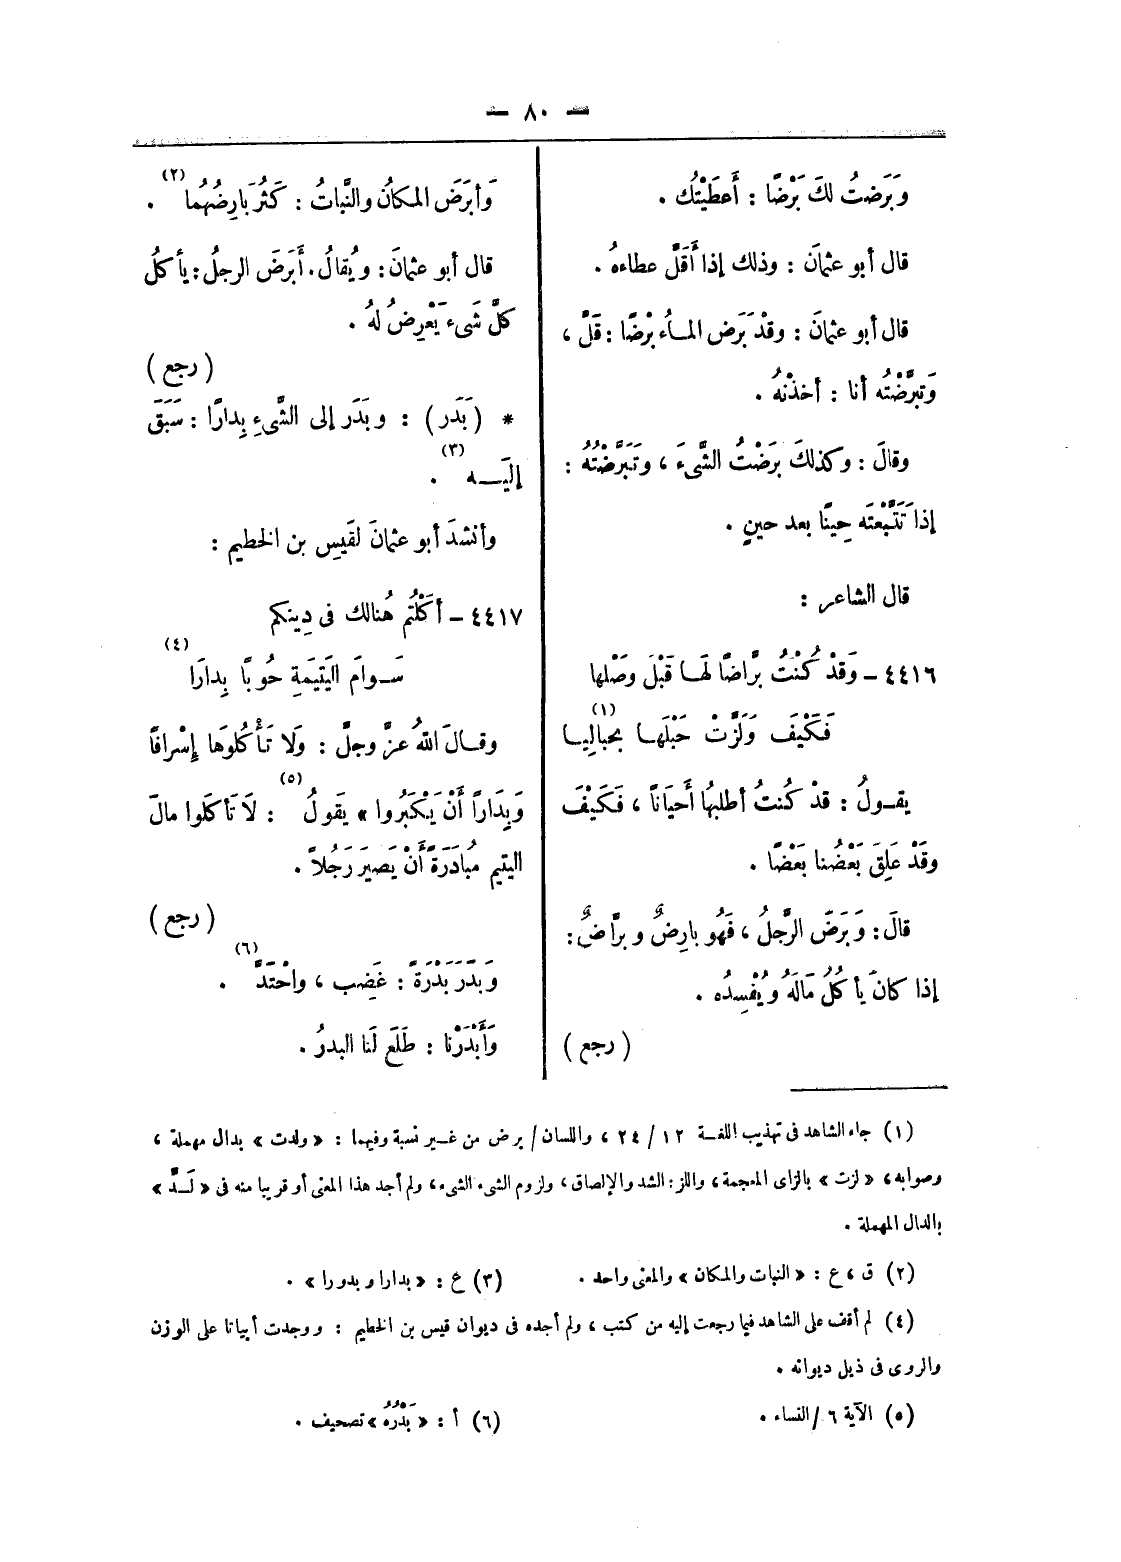 — ٨٠ —
وَبَرَضتُ لكَ بَرْضًا : أَعطَيْتُك .
قال أبو عثمانَ : وذلك إذا أَقَلَّ عطاءهُ .
قال أبو عثمانَ : وقدْ بَرَض المـاُء بْرضًا : قَلَّ ،
وَتبرَّضْتُه أنا : أخذتهُ .
وقالَ : وكذلكَ بَرَضْتُ الشَّىءَ ، وتَبَرَّضْتُهُ :
إذا تَتَبَّعتَه حِينًا بعد حينٍ .
قال الشاعر :
٤٤١٦ – وَقدْ كُنْتُ برَّاضًا لَهـا قَبْلَ وصْلها
فَكَيْفَ وَلَزَّتْ حَبْلَهـا بحِبالِيـا (١)
يقـولُ : قدْ كُنتُ أطلبهُا أَحيَاناً ، فَكَيْفَ
وقَدْ عَلِقَ بَعْضُنا بَعْضًا .
قالَ : وَبَرَضَ الرَّجلُ ، فَهُو بارِضٌ وبرَّاضٌ :
إذا كانَ يأكُلُ مَالَهُ ويُفْسِدُه .
( رجع )
وَأبرَضَ المكانُ والنَّباتُ : كَثُرَ بَارِضُهُما (٢) .
قال أبو عثمانَ : ويُقالُ . أَبَرَضَ الرجلُ : يأكلُ
كلَّ شَىء يَعْرِضُ لهُ .
( رجع )
* ( بَدَر ) : وبَدَر إلى الشَّىءِ بِدارًا : سَبَقَ
إليَـــه (٣) .
وأنشدَ أبو عثمانَ لقَيسِ بن الخطيم :
٤٤١٧ – أكَلْتُم هُنالك فى دِينكم
سَـوامَ اليَتيَمةِ حُوبًا بِدارَا (٤)
وقـالَ اللهُ عزَّ وجلَّ : وَلا تَأْكُلوَها إِسْرافًا
وَبِدَاراً أَنْ يَكْبَرُوا » (٥) يَقولُ : لاَ تَأكلَوا مالَ
اليتيم مُبادَرَةً أَنْ يَصيَر رَجُلاً .
( رجع )
وَبَدَرَ بَدْرَةً : غَضِب ، واحْتَدَّ (٦) .
وَأَبْدَرْنا : طَلَعَ لَنا البدرُ .
(١) جاء الشاهد فى تهذيب اللغـة ١٢ /٢٤ ، واللسان/ برض من غـير نسبة وفيهما : « ولدت » بدال مهملة ،
وصوابه، « لزت » بالزاى المعجمة، واللز : الشد والإلصاق، ولزوم الشىء الشىء، ولم أجد هذا المعنى أو قريبا منه فى « لَــدَّ »
بالدال المهملة .
(٢) ق ، ع : « النبات والمكان » والمعنى واحد .
(٣) ع : « بدارا وبدورا » .
(٤) لم أقف على الشاهد فيما رجعت إليه من كتب ، ولم أجده فى ديوان قيس بن الخطيم : ووجدت أبياتا على الوزن
والروى فى ذيل ديوانه .
(٥) الآية ٦/ النساء .
(٦) أ : « بَدْرُهُ » تصحيف .